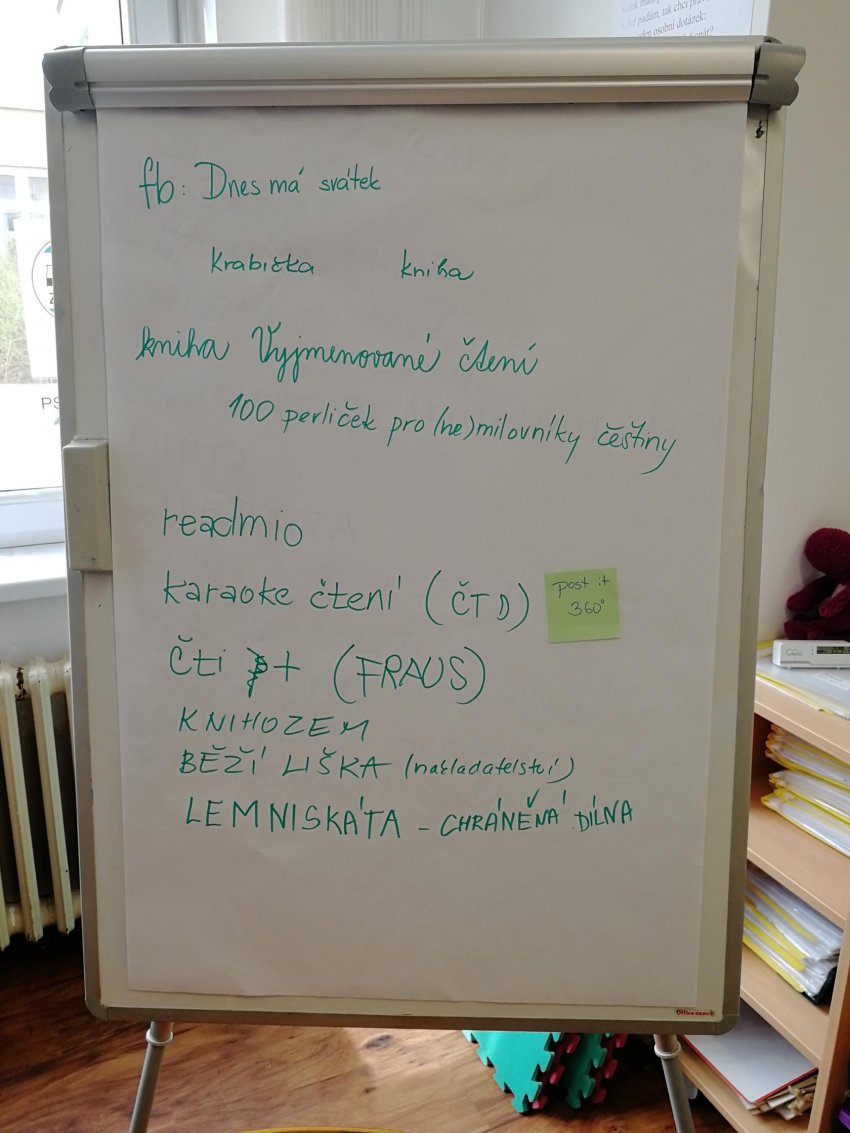 pádám, tak chci
osobní dotázek:
fb: Dnes má svátek
krabička kniha
kniha Vyjmenované čtení
100 perliček pro (ne)milovníky češtiny
readmio
karaoke čtení (ČTD)
post it
360°
Čti + (FRAUS)
KNIHOZEM
BĚŽÍ LIŠKA (nakladatelství)
LEMNISKÁTA - CHRÁNĚNÁ DÍLNA
Office DEPOT